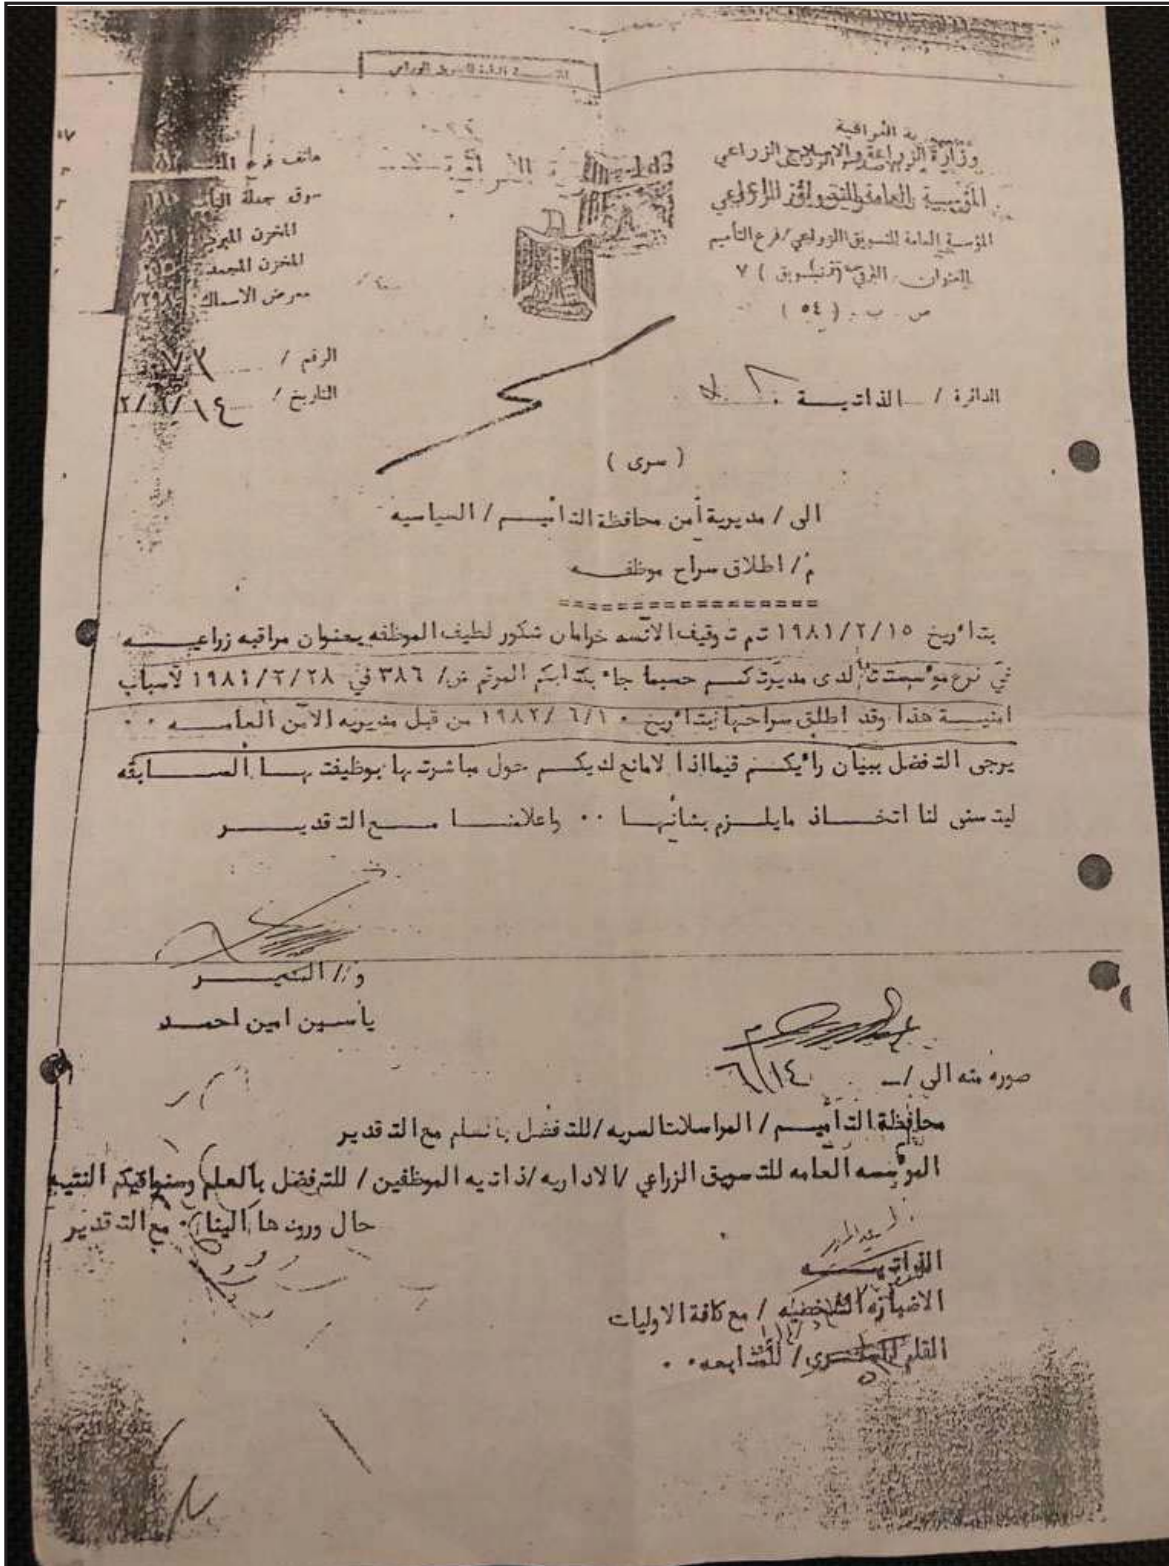 الجمهورية العراقية
وزارة الزراعة والاصلاح الزراعي
المؤسسة العامة للتسويق الزراعي/فرع التأميم
العنوان البرقي (تسويق) ٧
ص . ب . (٥٤)
هاتف
سوق جملة
المخزن المبرد
المخزن المجمد
معرض الاسماك
الرقم /
التاريخ /
الدائرة / الذاتيـــة
( سرى )
الى / مديرية أمن محافظة التأميـــم / السياسيه
م / اطلاق سراح موظفـــه
بتاريخ ١٩٨١/٢/١٥ تم توقيف الانسه خرامان شكور لطيف الموظفه بعنوان مراقبه زراعيـــه
في فرع مؤسستنا لدى مديرتكـــم حسبما جاء بكتابكم المرقم س/ ٣٨٦ في ١٩٨١/٢/٢٨ لأسباب
امنيـــة هذا وقد اطلق سراحها بتاريخ ١٩٨٢/٦/١٠ من قبل مديريه الأمن العامـــه ٠٠
يرجى التفضل ببيان رائيكـــم فيمااذا لامانع لديكـــم حول مباشرتها بوظيفتهـــا الســـابقه
ليتسنى لنا اتخـــاذ مايلـــزم بشانهـــا ٠٠ واعلامنـــا مـــع التقديـــر
و / المديـــر
ياسين امين احمـــد
صوره منه الى /ـ
٦/١٤
محافظة التأميـــم / المراسلات السريه /للتفضل بالعلم مع التقدير
المؤسسه العامه للتسويق الزراعي /الاداريه /ذاتيه الموظفين / للتفضل بالعلم وسنوافيكم النتيجه
حال ورودها الينا مع التقدير
الذاتيـــه
الاضباره الشخصيه / مع كافة الاوليات
القلم السري/ للمتابعه ٠٠